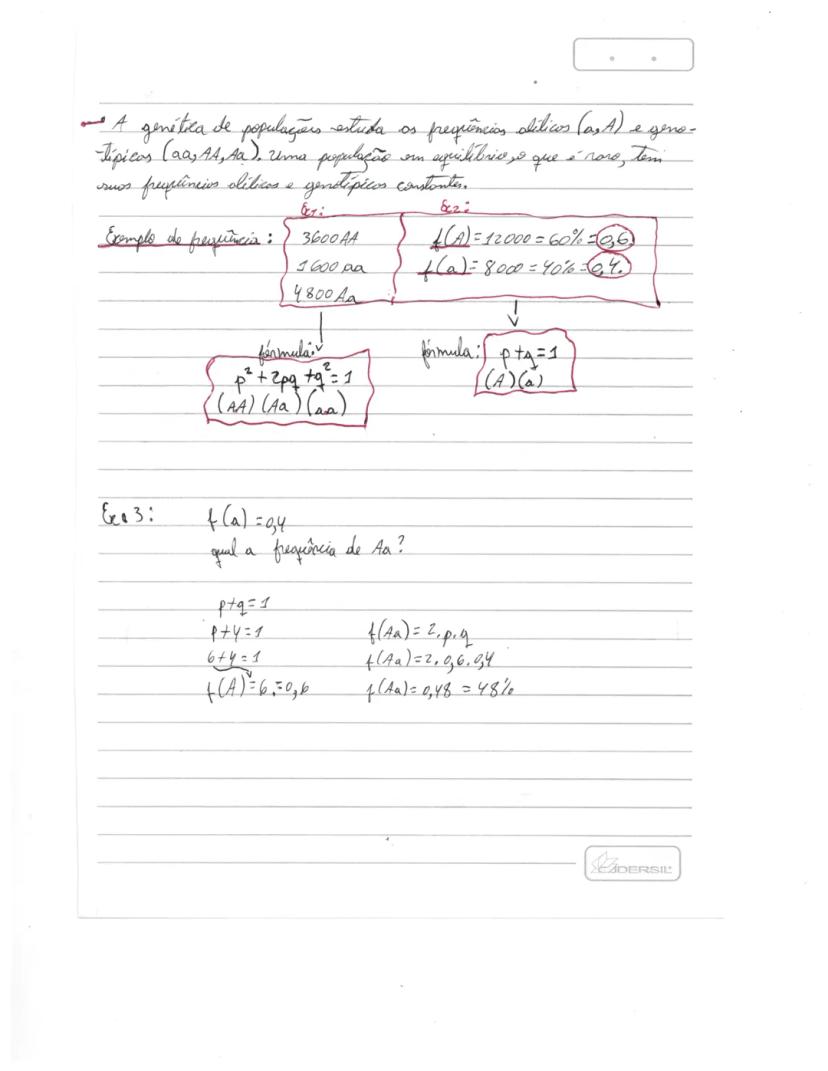 A genética de populações estuda as frequências alélicas (a, A) e geno-
típicas (aa, AA, Aa). Uma população em equilíbrio, o que é raro, tem
suas frequências alélicas e genotípicas constantes.
Ex1: Ex2:
Exemplo de frequência: 3600 AA f(A)=12000=60%=0,6
1600 aa f(a)=8000=40%=0,4.
4800 Aa
fórmula: fórmula: p+q=1
p²+2pq+q²=1 (A)(a)
(AA)(Aa)(aa)
Ex. 3: f(a)=0,4
qual a frequência de Aa?
p+q=1
p+4=1 f(Aa)=2.p.q
6+4=1 f(Aa)=2.0,6.0,4
f(A)=6.=0,6 f(Aa)=0,48=48%
CADERSIL